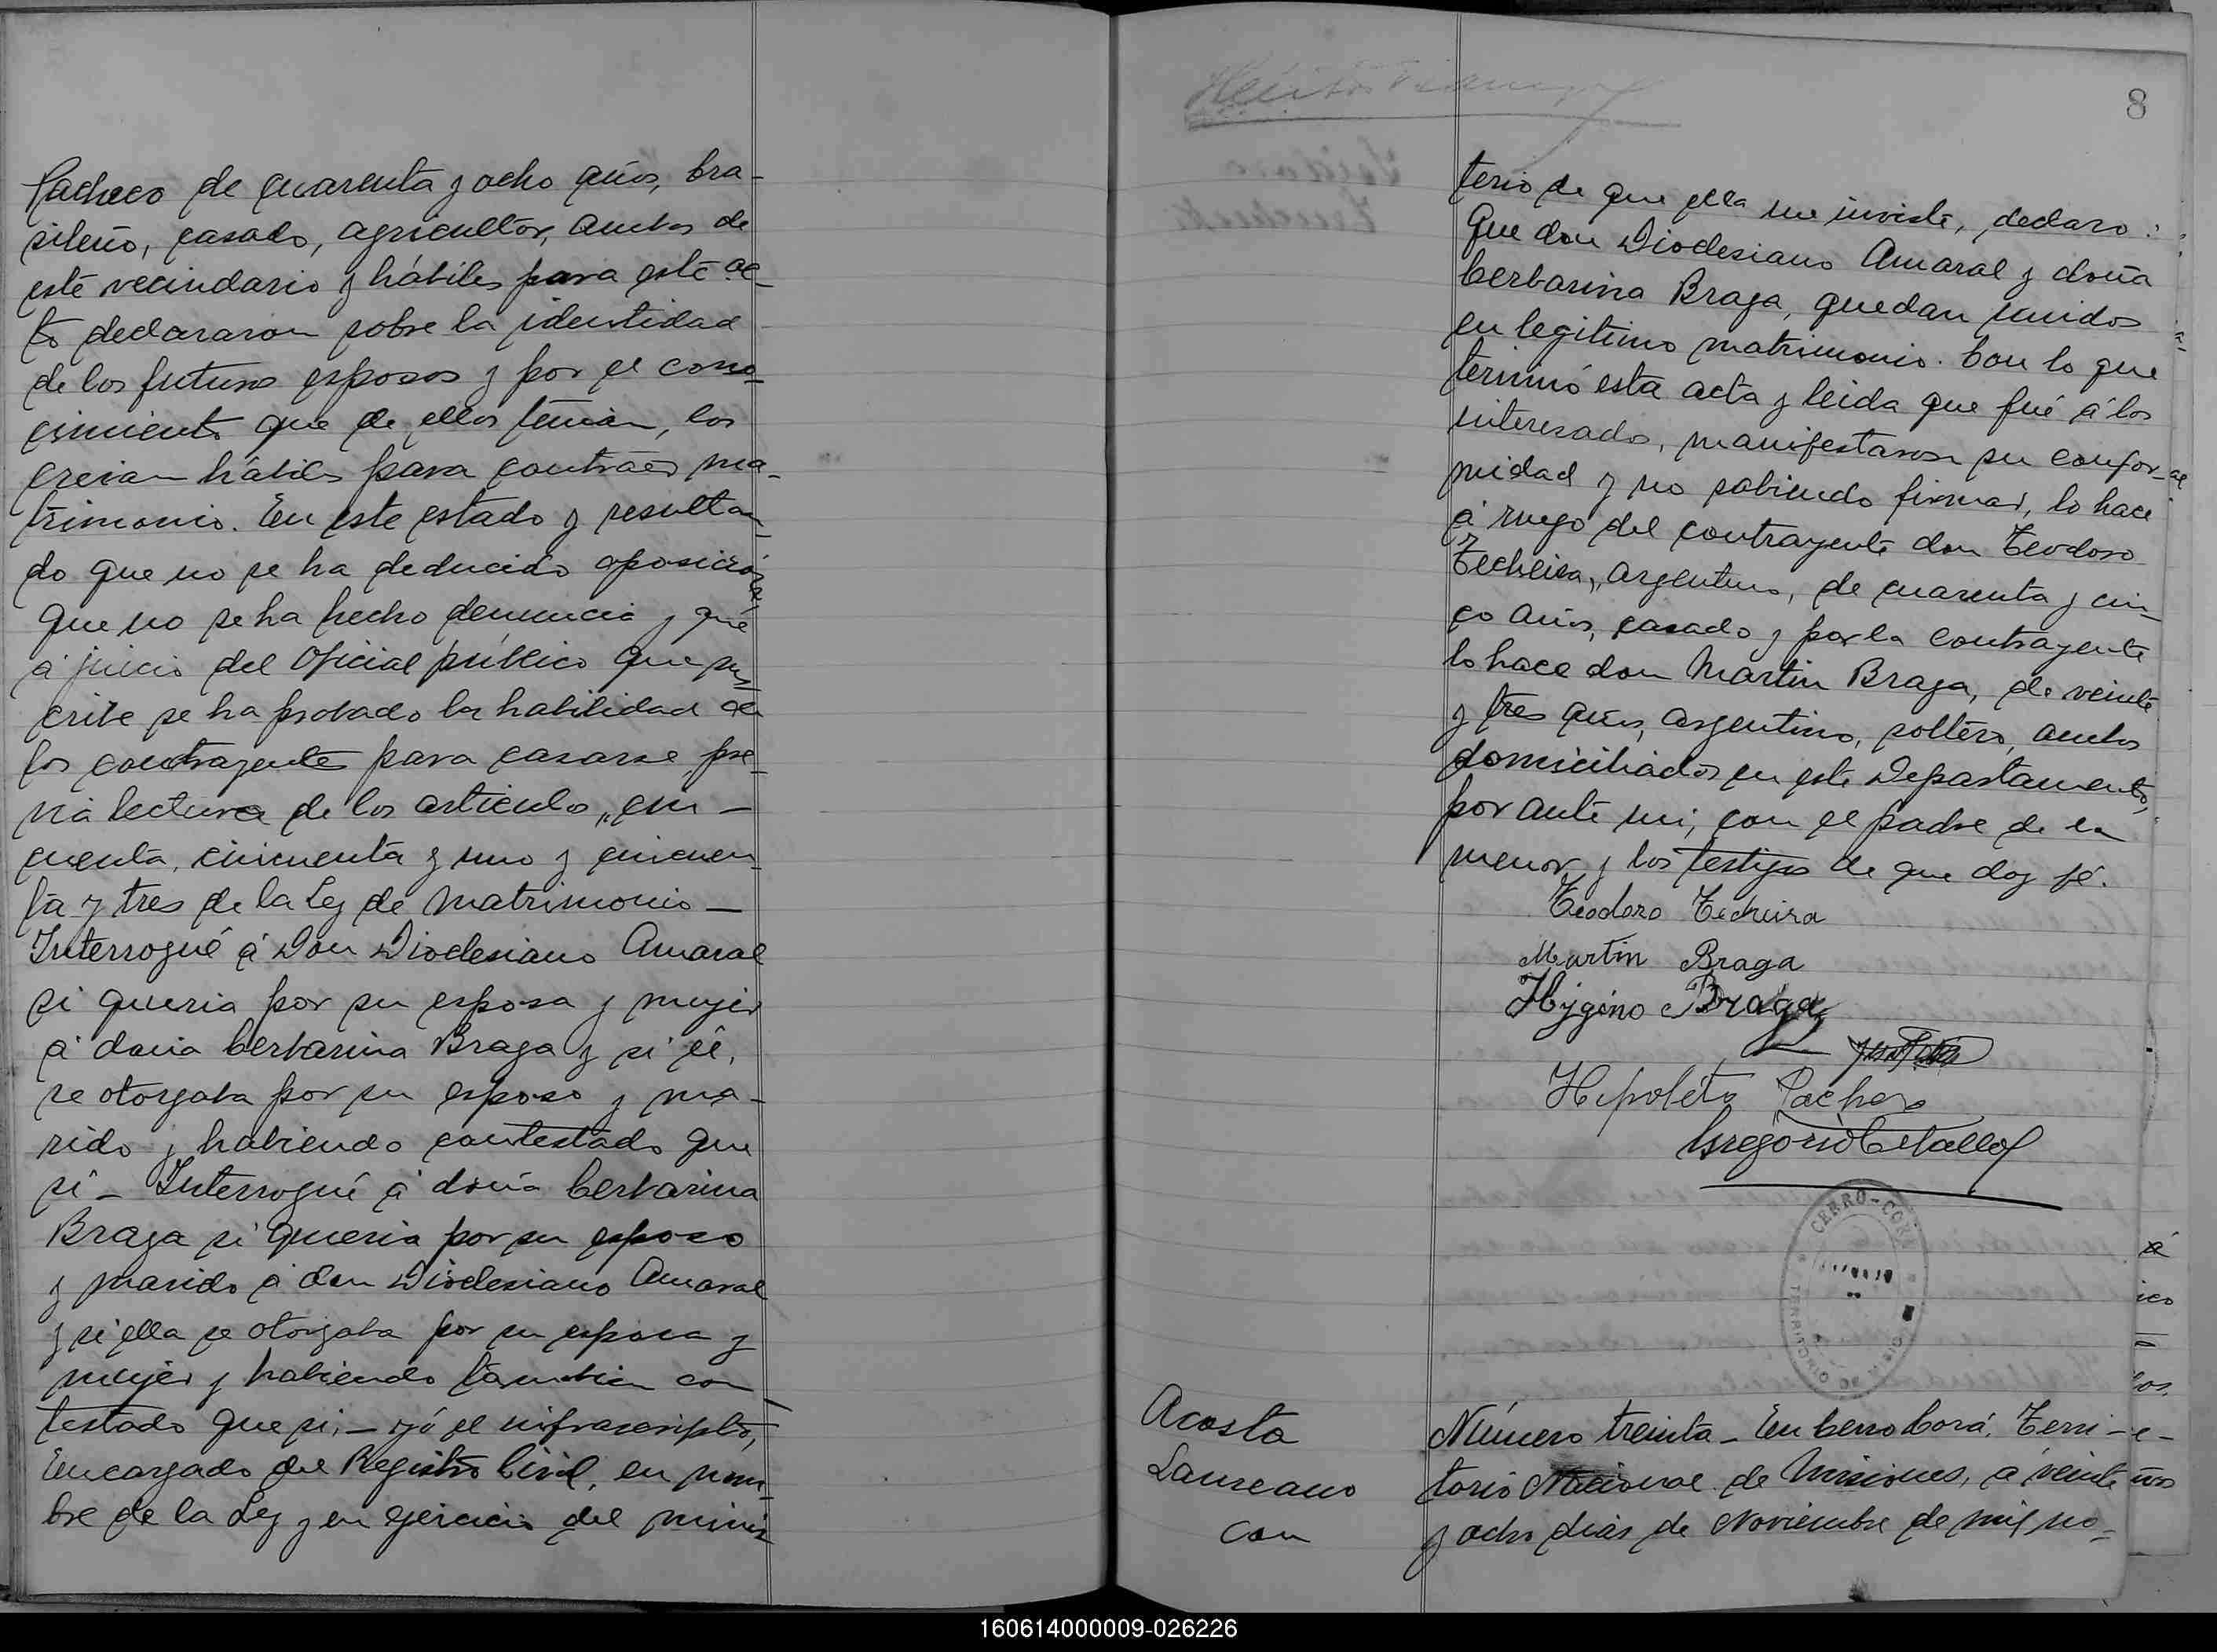 Pacheco de cuarenta y ocho años, bra-
sileño, casado, agricultor, ambos de
este vecindario y hábiles para este ac-
to declararon sobre la identidad
de los futuros esposos y por el cono-
cimiento que de ellos tenian, los
creian hábiles para contraer ma-
trimonio. En este estado y resultan-
do que no se ha deducido oposición,
que no se ha hecho denuncia y que
á juicio del Oficial público que sus-
cribe se ha probado la habilidad de
los contrayentes para casarse, pre-
via lectura de los articulos, cin-
cuenta, cincuenta y uno y cincuen-
ta y tres de la Ley de Matrimonio -
Interrogué á Don Dioclesiano Amaral
si queria por su esposa y mujer
á doña Cerbarina Braga y si él,
se otorgaba por su esposo y ma-
rido y habiendo contestado que
si - Interrogué á doña Cerbarina
Braga si queria por su esposo
y marido á don Dioclesiano Amaral
y si ella se otorgaba por su esposa y
mujer y habiendo tambien con-
testado que si, - yó el infrascripto,
Encargado del Registro Civil, en nom-
bre de la Ley y en ejercicio del minis-
8
terio de que ella me inviste, declaro:
Que don Dioclesiano Amaral y doña
Cerbarina Braga, quedan unidos
en legitimo matrimonio. Con lo que
terminó esta acta y leida que fué á los
interesados, manifestaron su confor-
midad y no sabiendo firmar, lo hace
á ruego del contrayente don Teodoro
Techeira, argentino, de cuarenta y cin-
co años, casado y por la contrayente
lo hace don Martin Braga, de veinte
y tres años, argentino, soltero, ambos
domiciliados en este Departamento,
por ante mi, con el padre de la
menor y los testigos de que doy fé.
Teodoro Techeira
Martin Braga
Hygino Braga
Hipolito Pacheco
Gregorio Ceballos
CERRO-CORÁ
TERRITORIO DE MISIONES
Acosta
Laureano
con
Número treinta - En Cerro Corá, Terri-
torio Nacional de Misiones, á veinte
y ocho dias de Noviembre de mil no-
160614000009-026226